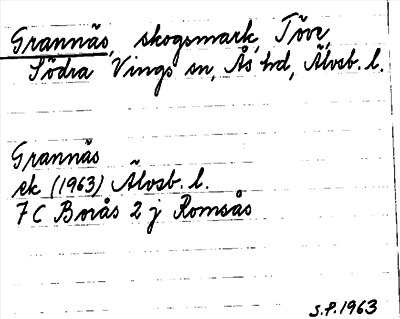 Grannäs, skogsmark, Töve,
Södra Vings sn, Ås hd, Älvsb. l.
Grannäs
ek (1963) Älvsb. l.
7 C Borås 2 j Romsås
S.P. 1963